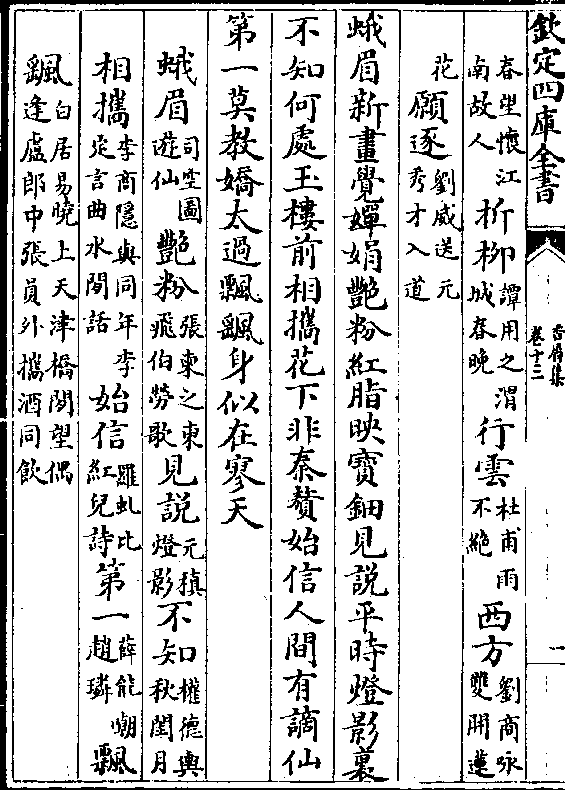 欽定四庫全書
香屑集
卷十三
一
春望懷江南故人折柳譚用之渭城春晚行雲杜甫雨不絶西方劉商咏雙開蓮
花願逐劉威送元秀才入道
蛾眉新畫覺嬋娟艷粉紅脂映寳鈿見説平時燈影裏
不知何處玉樓前相攜花下非秦贅始信人間有謫仙
第一莫教嬌太過飄飄身似在寥天
蛾眉司空圖遊仙艷粉張柬之東飛伯勞歌見説元稹燈影不知權德輿秋閨月
相攜李商隱與同年李定言曲水閒話始信羅虬比紅兒詩第一薛能嘲趙璘飄
飄白居易曉上天津橋閒望偶逢盧郎中張員外攜酒同飲